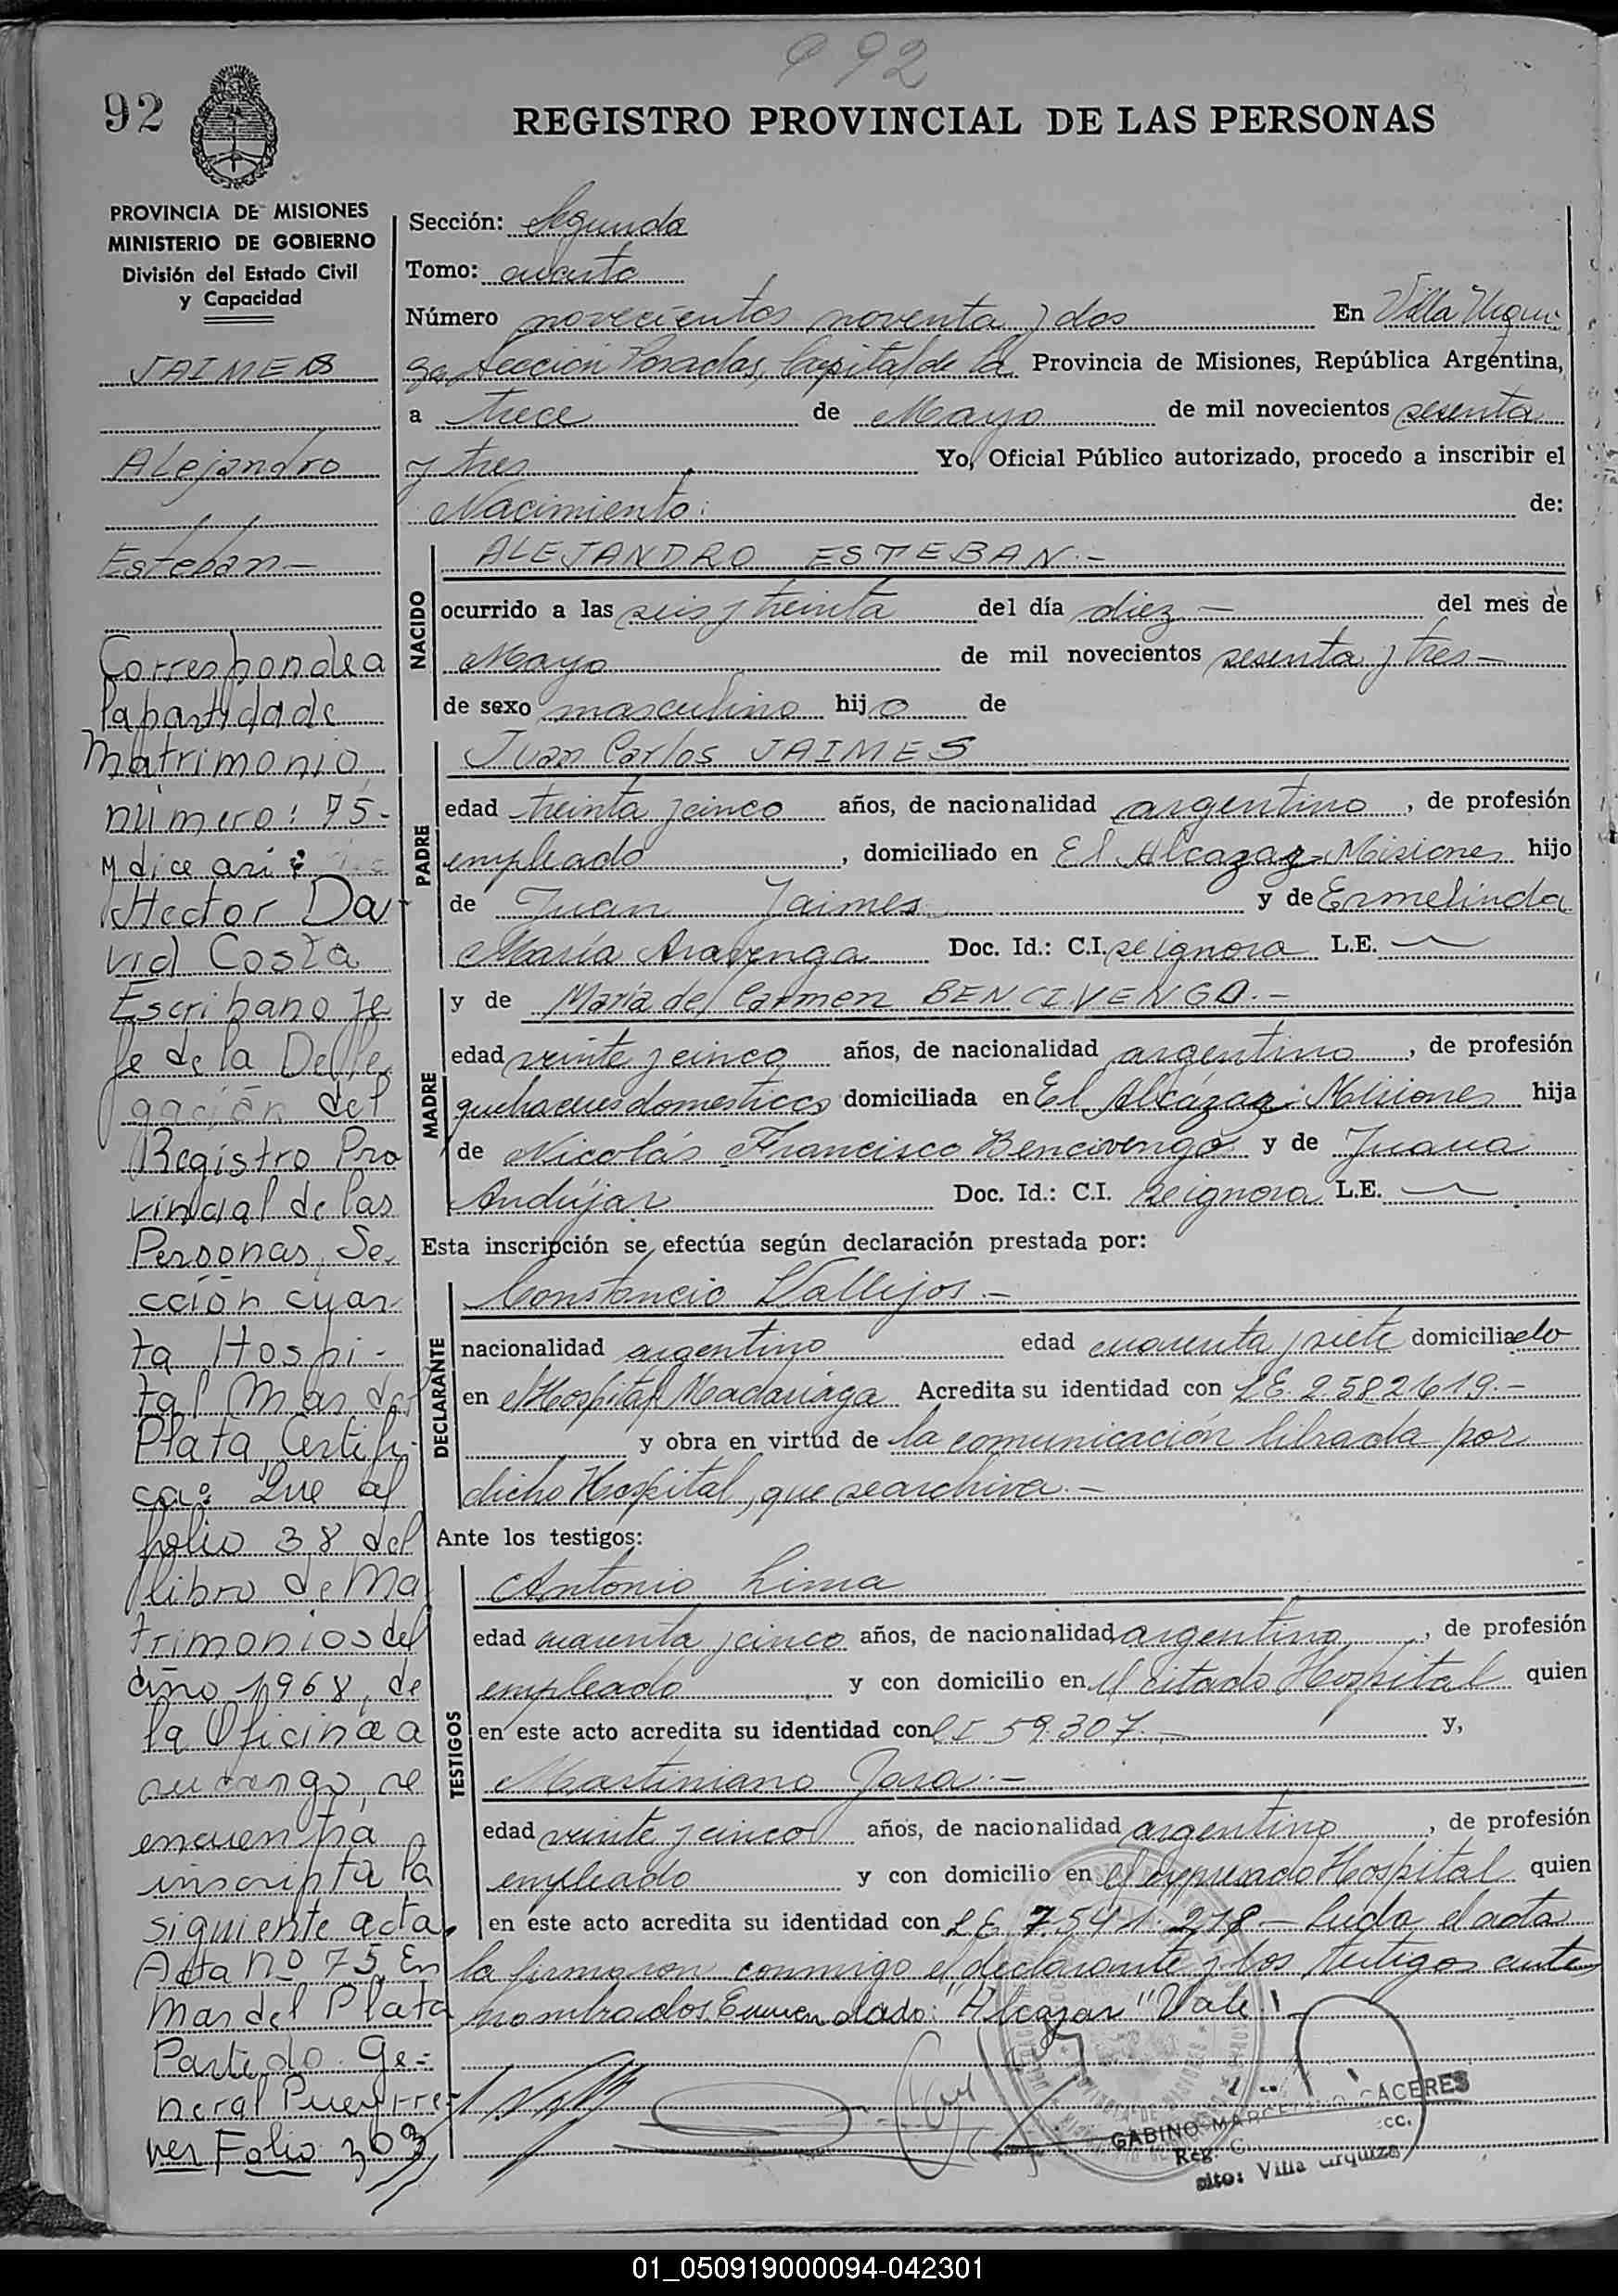 992
92
REGISTRO PROVINCIAL DE LAS PERSONAS
PROVINCIA DE MISIONES
MINISTERIO DE GOBIERNO
División del Estado Civil
y Capacidad
JAIMES
Alejandro
Esteban -
Corresponde a
la partida de
Matrimonio
número: 75-
y dice así:
Hector Da
vid Costa
Escribano Je
fe de la Dele
gación del
Registro Pro
vincial de las
Personas, Se-
cción cuar
ta Hospi-
tal Mar del
Plata, Certifi-
ca: Que al
folio 38 del
libro de Ma
trimonios del
año 1968, de
la Oficina a
su cargo, se
encuentra
inscripta la
siguiente acta,
Acta nº 75, En
Mar del Plata
Partido Ge-
neral Pueyrre-
ver Folio 303
Sección: Segunda
Tomo: cuarto
Número novecientos noventa y dos En Villa Urqui
za, Sección Posadas, Capital de la Provincia de Misiones, República Argentina,
a trece de Mayo de mil novecientos sesenta
y tres Yo, Oficial Público autorizado, procedo a inscribir el
Nacimiento: de:
NACIDO
ALEJANDRO ESTEBAN.-
ocurrido a las seis y treinta del día diez - del mes de
Mayo de mil novecientos sesenta y tres -
de sexo masculino hijo de
PADRE
Juan Carlos JAIMES
edad treinta y cinco años, de nacionalidad argentino, de profesión
empleado, domiciliado en El Alcazar Misiones hijo
de Juan Jaimes y de Ermelinda
María Aravenga Doc. Id.: C.I. se ignora L.E. —
MADRE
y de María del Carmen BENCIVENGO.-
edad veinte y cinco años, de nacionalidad argentina, de profesión
quehaceres domesticos domiciliada en El Alcázar - Misiones hija
de Nicolás Francisco Bencivengo y de Juana
Andújar Doc. Id.: C.I. se ignora L.E. —
Esta inscripción se efectúa según declaración prestada por:
DECLARANTE
Constancio Vallejos.-
nacionalidad argentino edad cuarenta y siete domiciliado
en el Hospital Madariaga Acredita su identidad con L.E. 2.582.619.-
y obra en virtud de la comunicación librada por
dicho Hospital, que se archiva.-
Ante los testigos:
TESTIGOS
Antonio Lima
edad cuarenta y cinco años, de nacionalidad argentino, de profesión
empleado y con domicilio en el citado Hospital quien
en este acto acredita su identidad con C.I 59.307.- y,
Martiniano Jara.-
edad veinte y cinco años, de nacionalidad argentino, de profesión
empleado y con domicilio en el expresado Hospital quien
en este acto acredita su identidad con L E 7.541.218 - Leída el acta
la firmaron conmigo el declarante y los testigos antes
nombrados. Enmendado: "Alcazar" Vale.
GABINO MARCELINO CACERES
Villa Urquiza
01_050919000094-042301